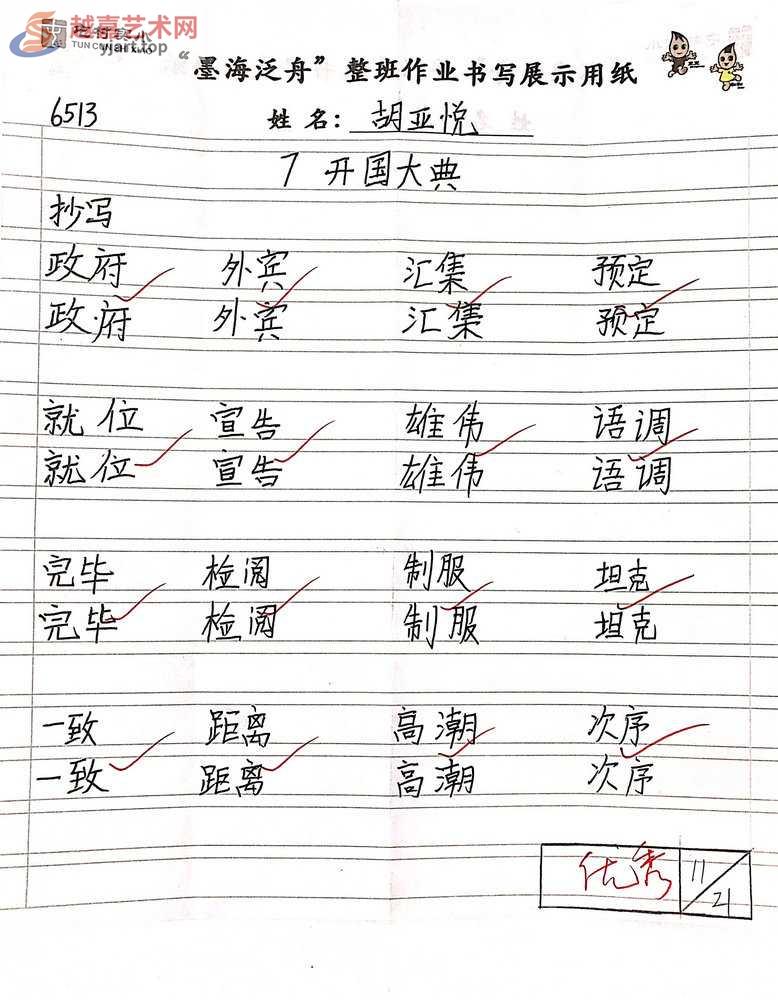 越嘉艺术网
yjart.top
“墨海泛舟”整班作业书写展示用纸
6513 姓名: 胡亚悦
7 开国大典
抄写
政府 外宾 汇集 预定
政府 外宾 汇集 预定
就位 宣告 雄伟 语调
就位 宣告 雄伟 语调
完毕 检阅 制服 坦克
完毕 检阅 制服 坦克
一致 距离 高潮 次序
一致 距离 高潮 次序
优秀 11/21